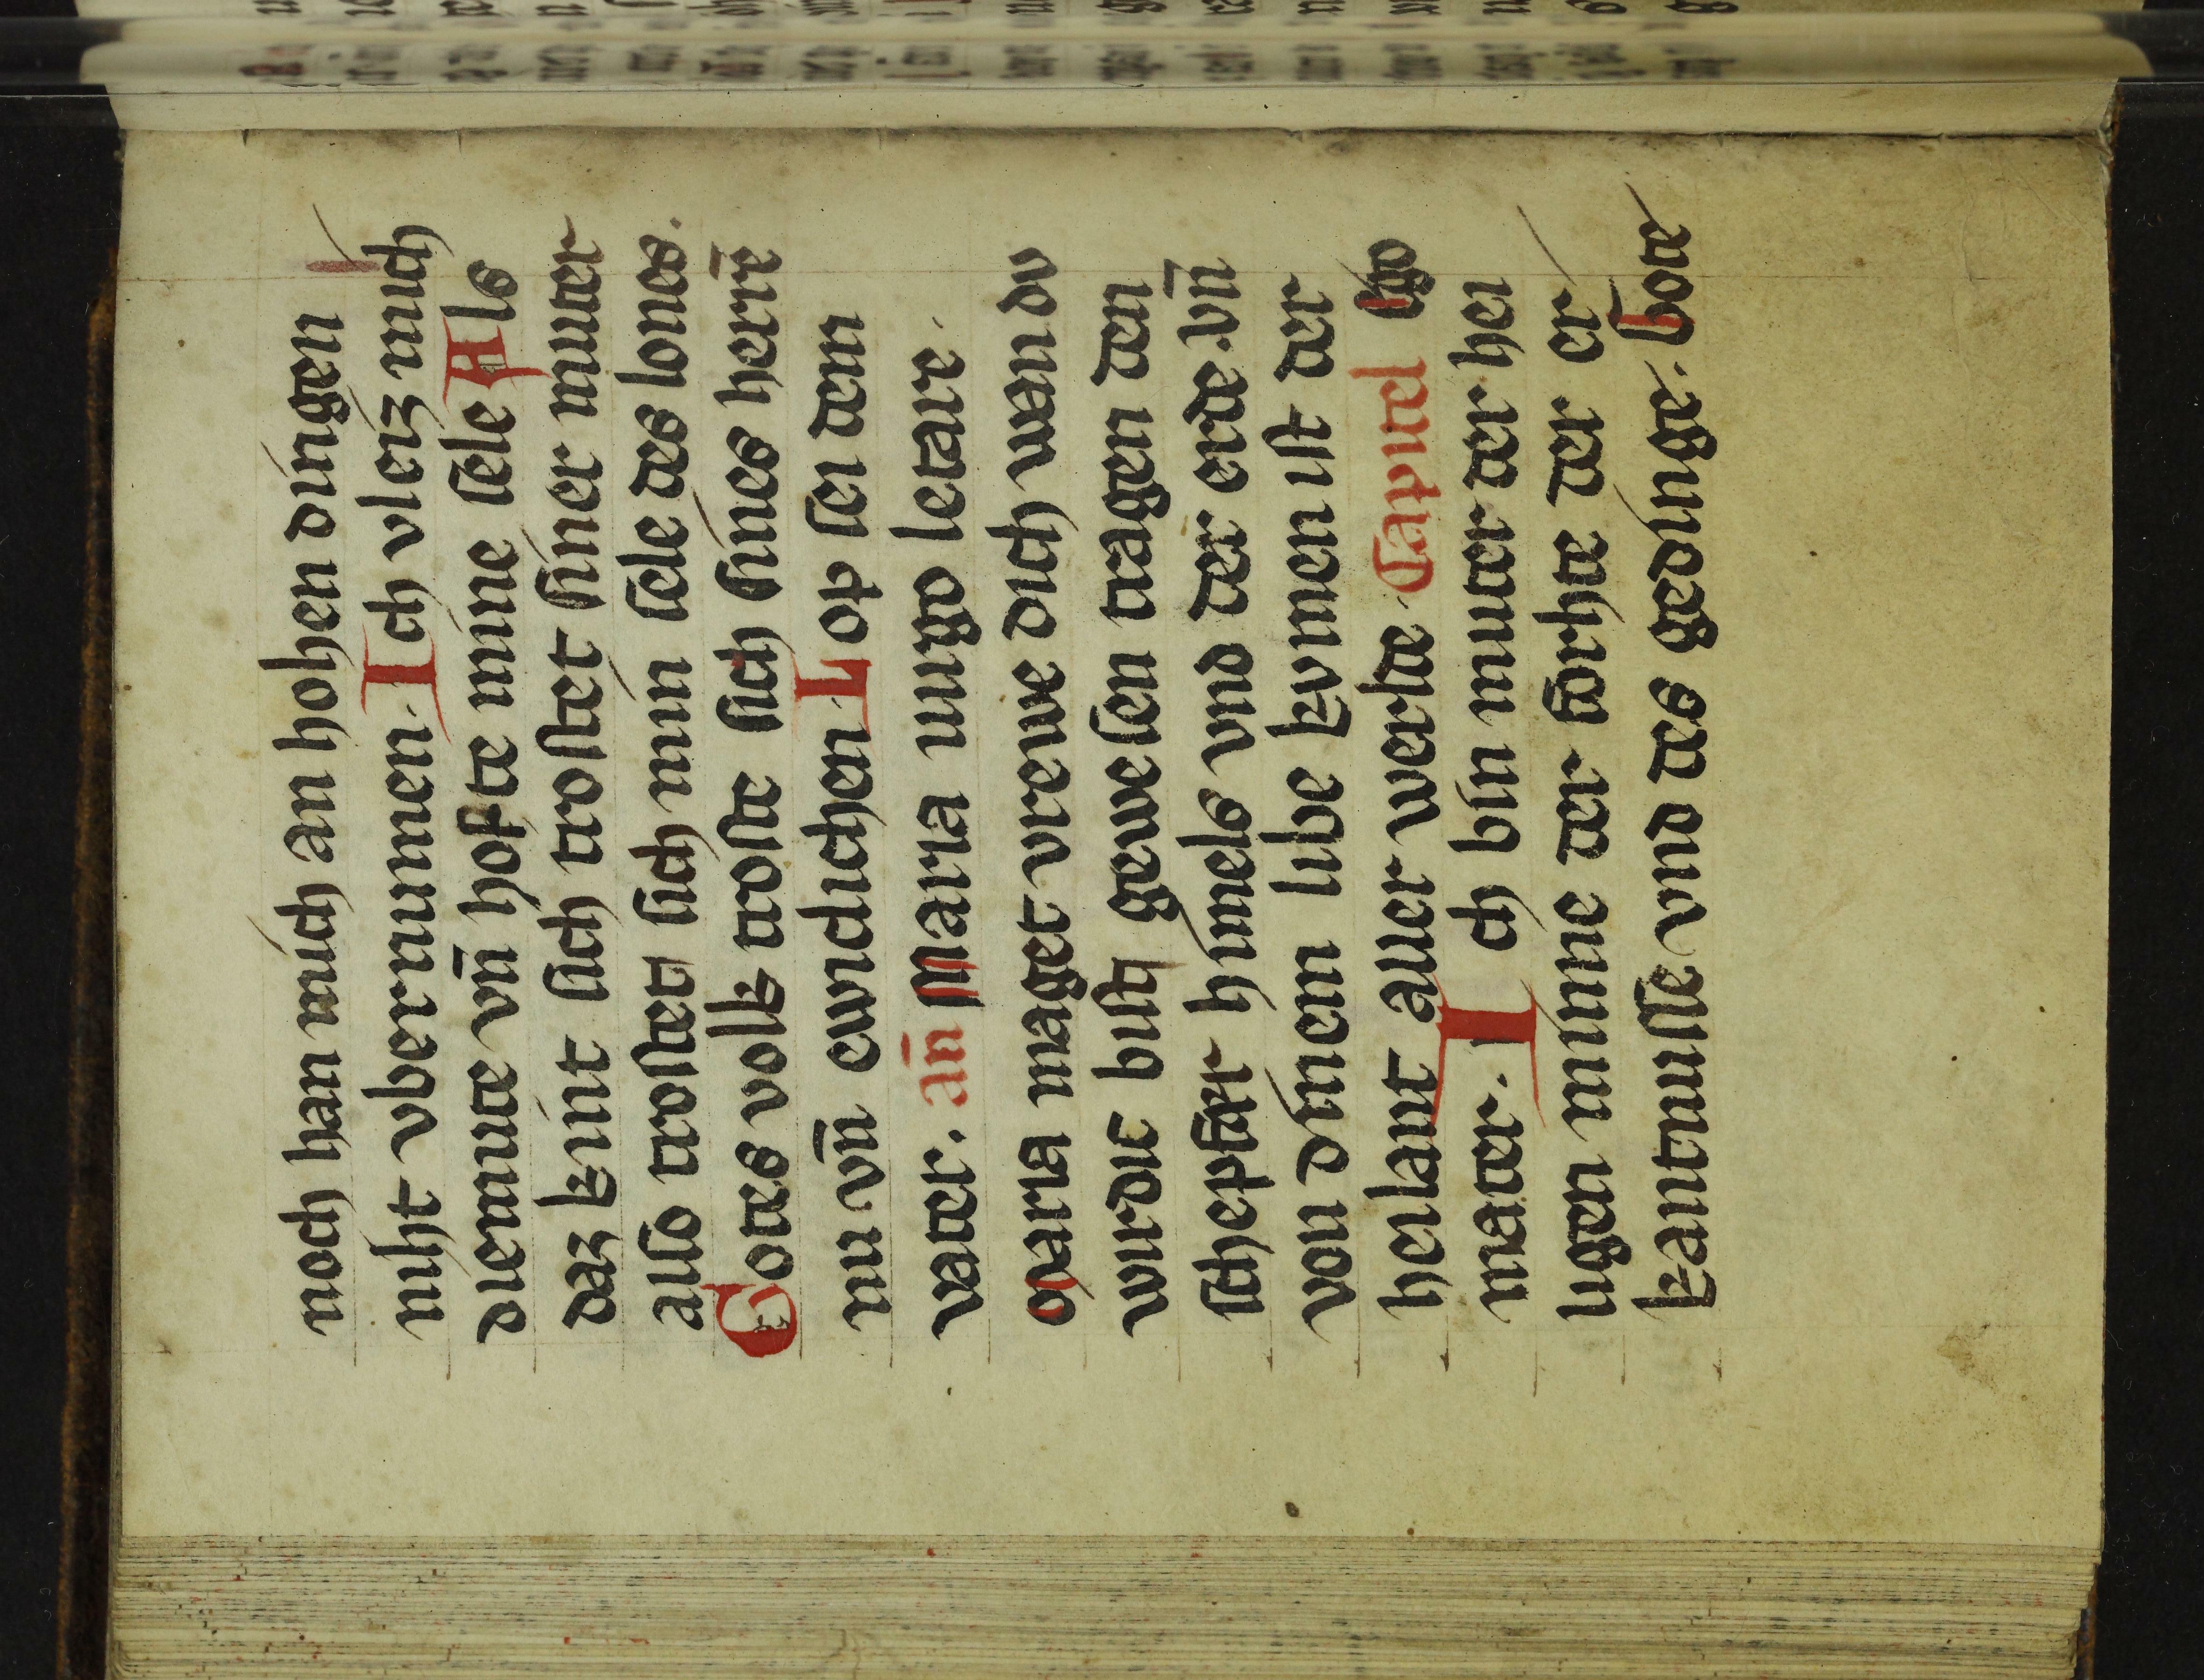 noch han mich an hohen dingen
niht vbernumen. Ich vleiz mich
diemute vn̄ hofte mine sele Als
daz kint sich trostet siner muter
also trostet sich min sele des lones.
Gotes volk troste sich sines herrē
nu vn̄ ewiclichen Lop sei dem
vater. an̄ Maria uirgo letare.
Maria maget vrewe dich wan dv
wirdic bist gewesen tragen den
schepfer himels vnd der erde. vn̄
von dinem libe kvmen ist der
heilant aller werlte. Capitel Ego
mater. Ich bin muter der hei
ligen minne der vorhte der er
kantnusse vnd des gedinge. bote